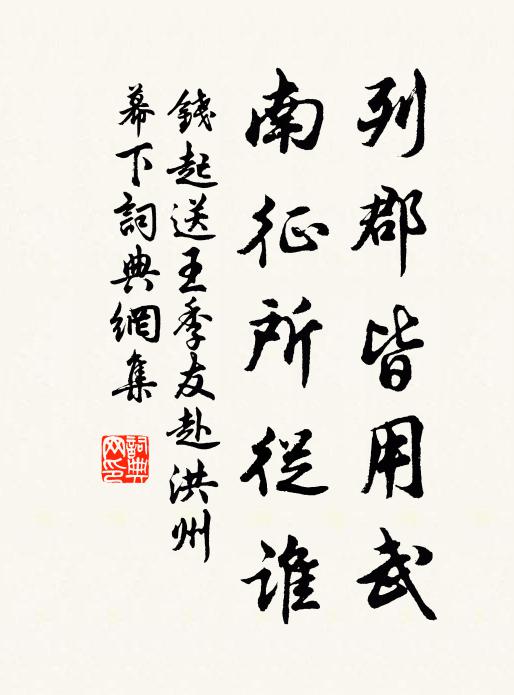 列郡皆用武
南征所從誰
錢起送王季友赴洪州
幕下詞典網集
詞典网印